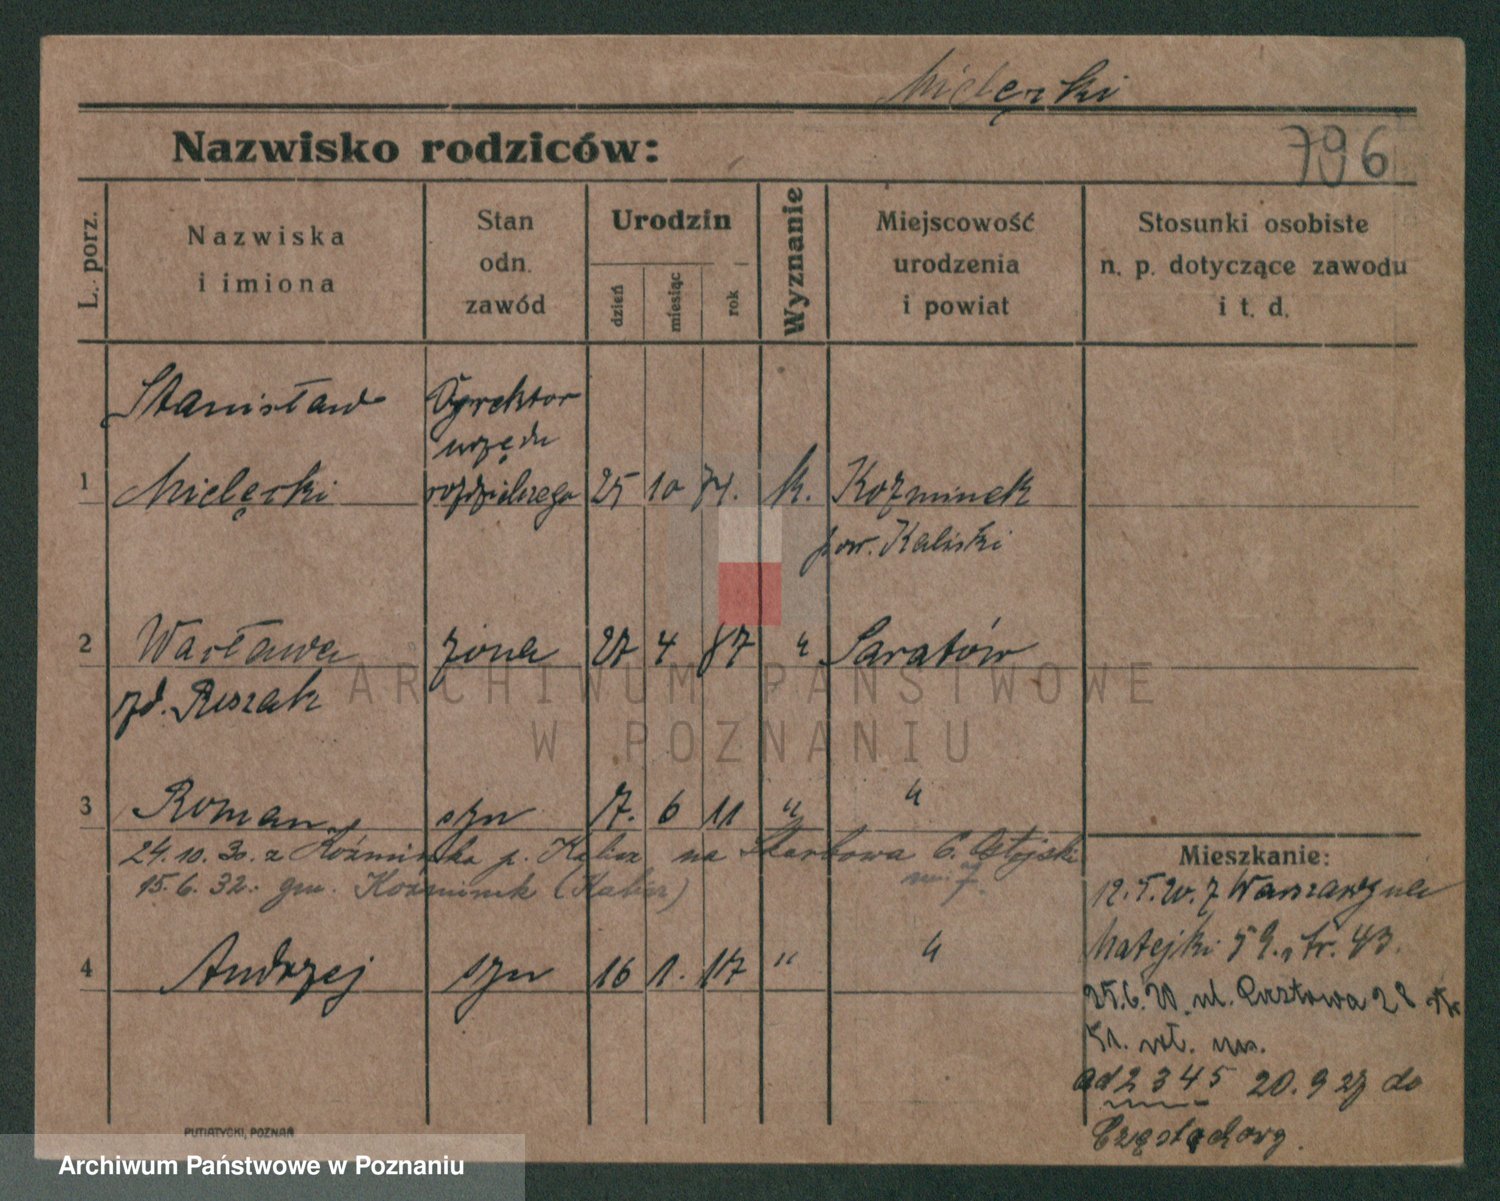 Mielęcki
Nazwisko rodziców:
796
L. porz.
Nazwiska
i imiona
Stan
odn.
zawód
Urodzin
dzień
miesiąc
rok
Wyznanie
Miejscowość
urodzenia
i powiat
Stosunki osobiste
n. p. dotyczące zawodu
i t. d.
Stanisław Dyrektor
urzędu
1 Mielęcki rozdzielczego 25 10 74. k. Kozminek
pow. Kaliski
2 Wacława żona 27 4 87 " Saratów
zd. Reszak
3 Roman syn 7. 6 11 " "
24.10.30. z Koźminka p. Kalisz, na Skarbowa 6.
15.6.32. gm. Koźminek (Kalisz)
Mieszkanie:
12.5.20. z Warszawy ul.
4 Andrzej syn 16 1. 17 " "
Matejki 59. tr. 43.
25.6.20. ul. Pocztowa 28
ad 2 3 4 5 20.9 27 do
Częstochowy.
PUTIATYCKI, POZNAŃ
ARCHIWUM PAŃSTWOWE
W POZNANIU
Archiwum Państwowe w Poznaniu